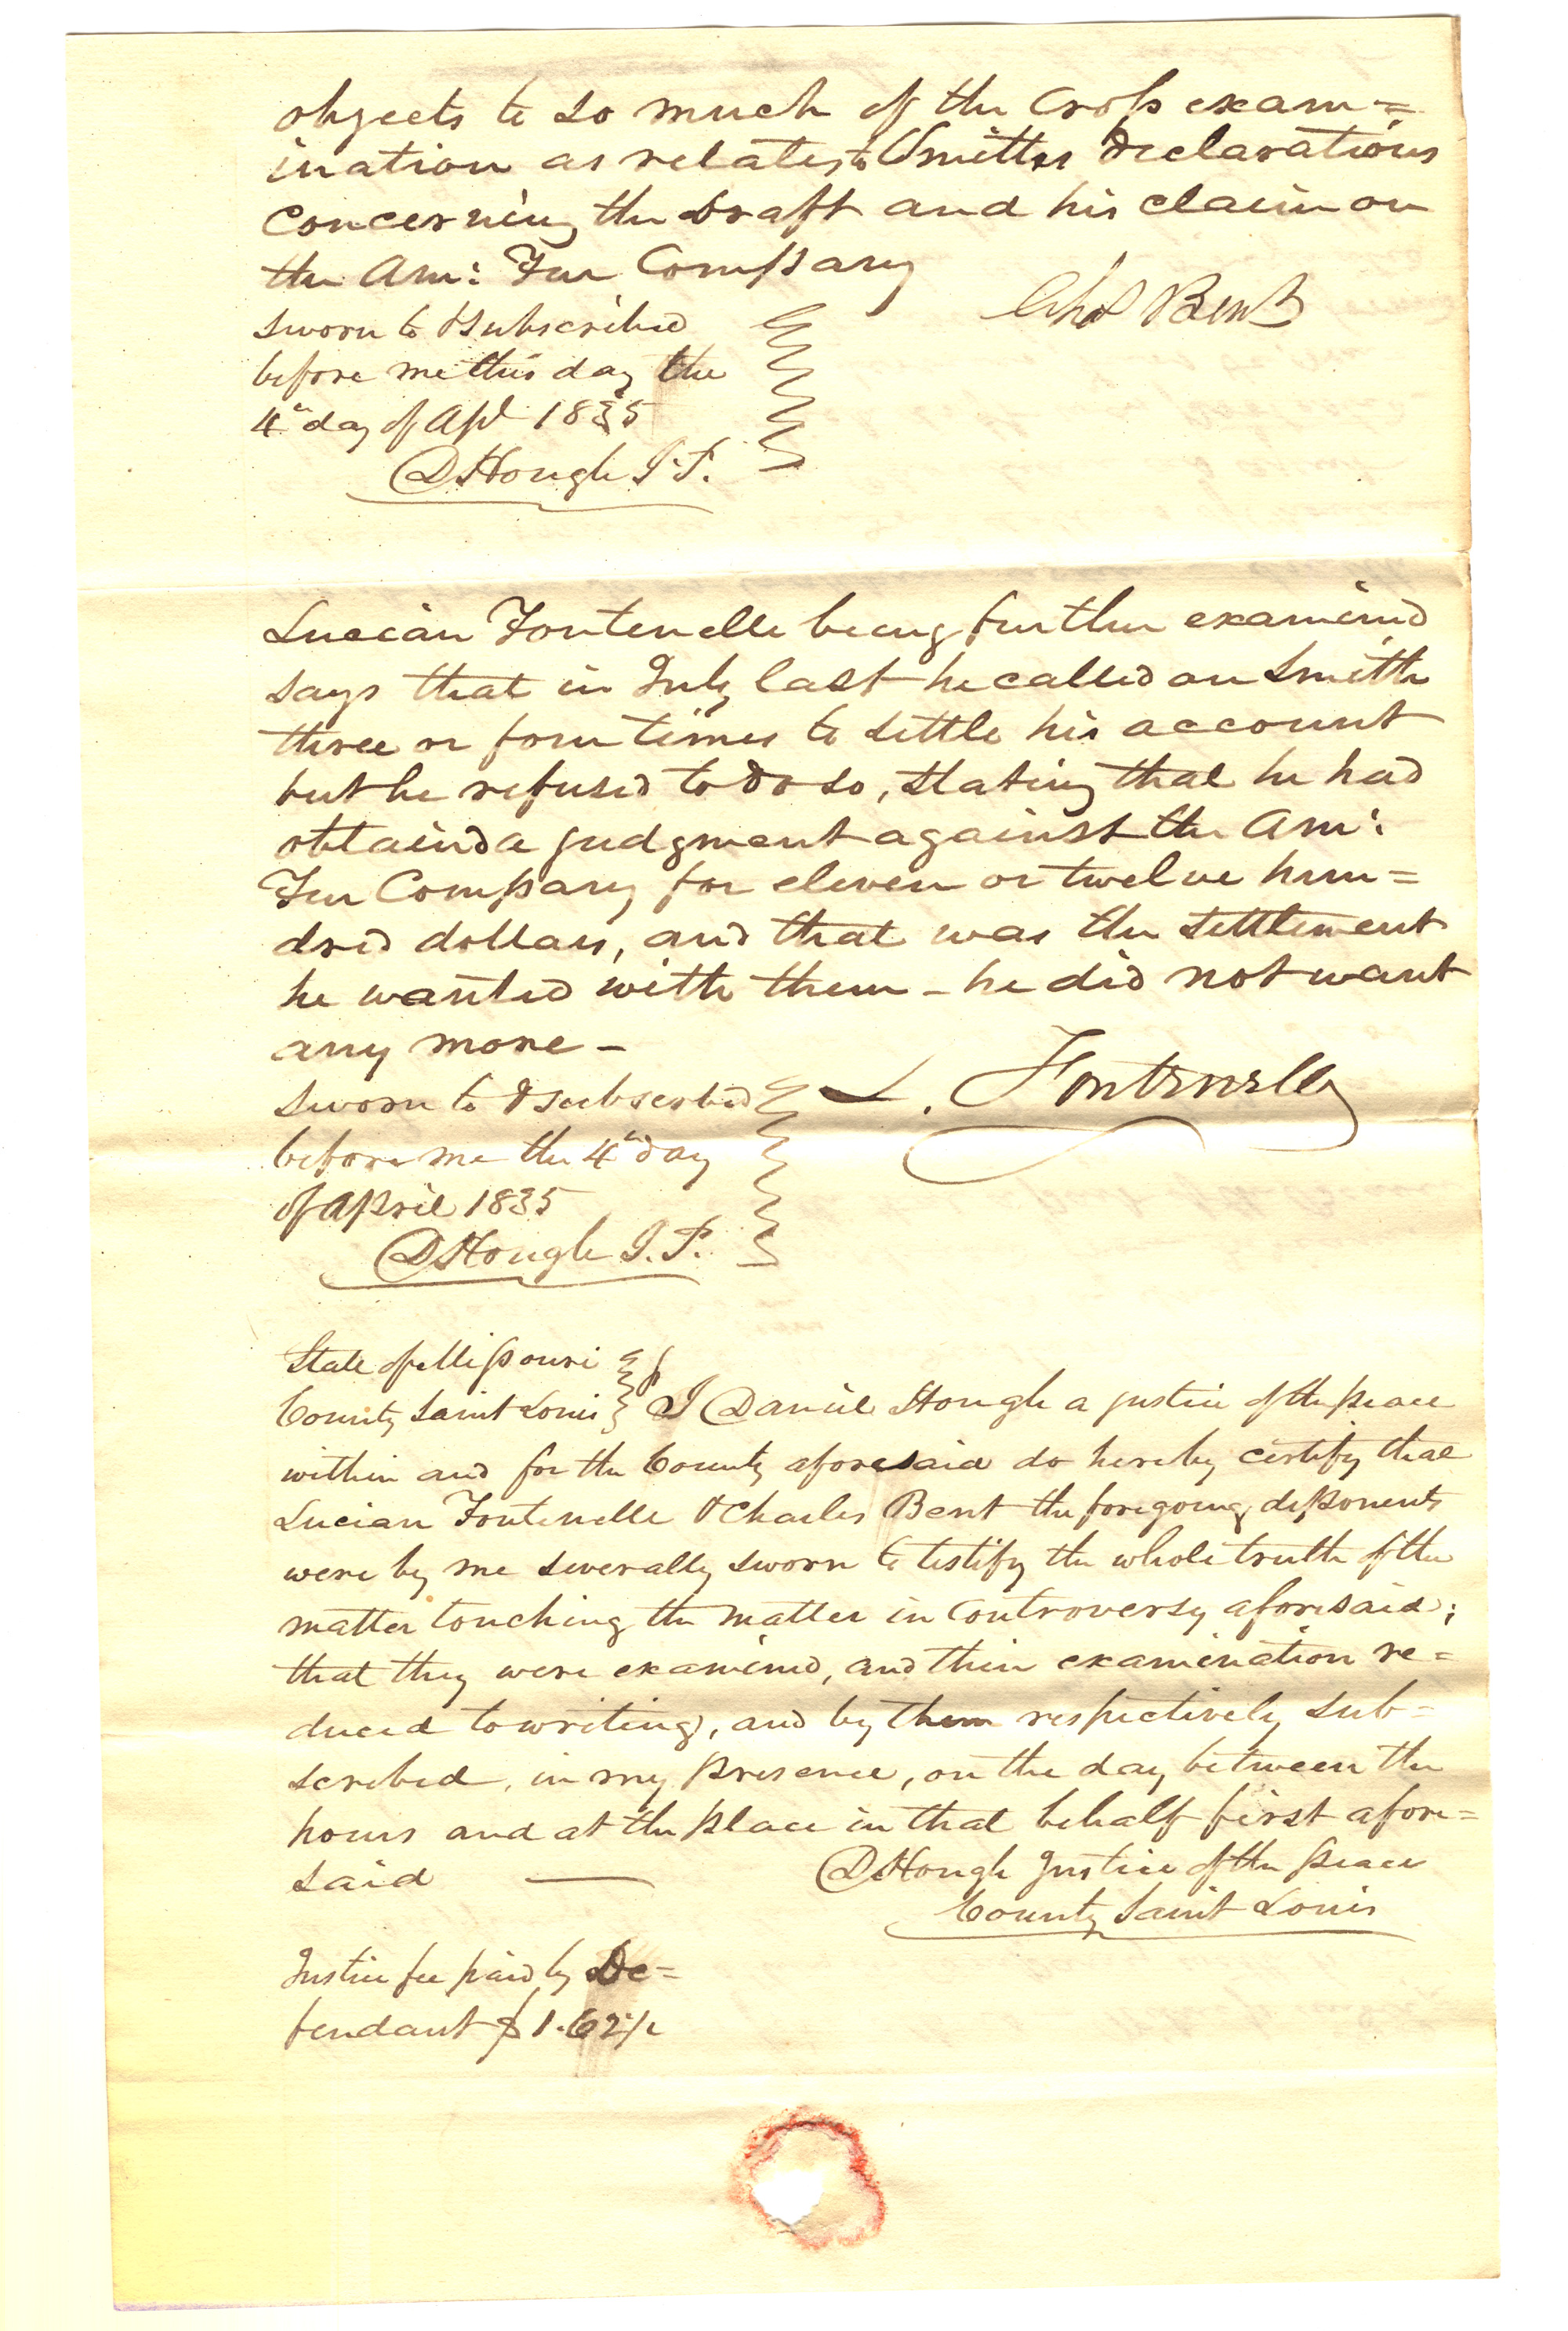 objects to so much of the Cross exam=
ination as relates to Smiths declarations
concerning the Draft and his claim on
the Am: Fur Company
Chas Bent
sworn to & subscribed
before me this day the
4th day of Apl 1835
D Hough J.P.
Lucian Fontenelle being further examined
says that in July last he called on Smith
three or four times to settle his account
but he refused to do so, stating that he had
obtaind a judgment against the Am:
Fur Company for eleven or twelve hun=
dred dollars, and that was the settlement
he wanted with them - he did not want
any more -
L. Fontenelle
sworn to & subscribed
before me the 4th day
of April 1835
D Hough J.P.
State of Missouri
County Saint Louis } ss I Daniel Hough a justice of the peace
within and for the County aforesaid do hereby certify that
Lucian Fontenelle & Charles Bent the foregoing deponents
were by me severally sworn to testify the whole truth of the
matter touching the matter in controversy aforesaid;
that they were examined, and their examination re=
duced to writing, and by them respectively sub=
scribed, in my presence, on the day between the
hours and at the place in that behalf first afore=
said
D Hough Justice of the peace
County Saint Louis
Justice fee paid by De=
fendant $1.62½